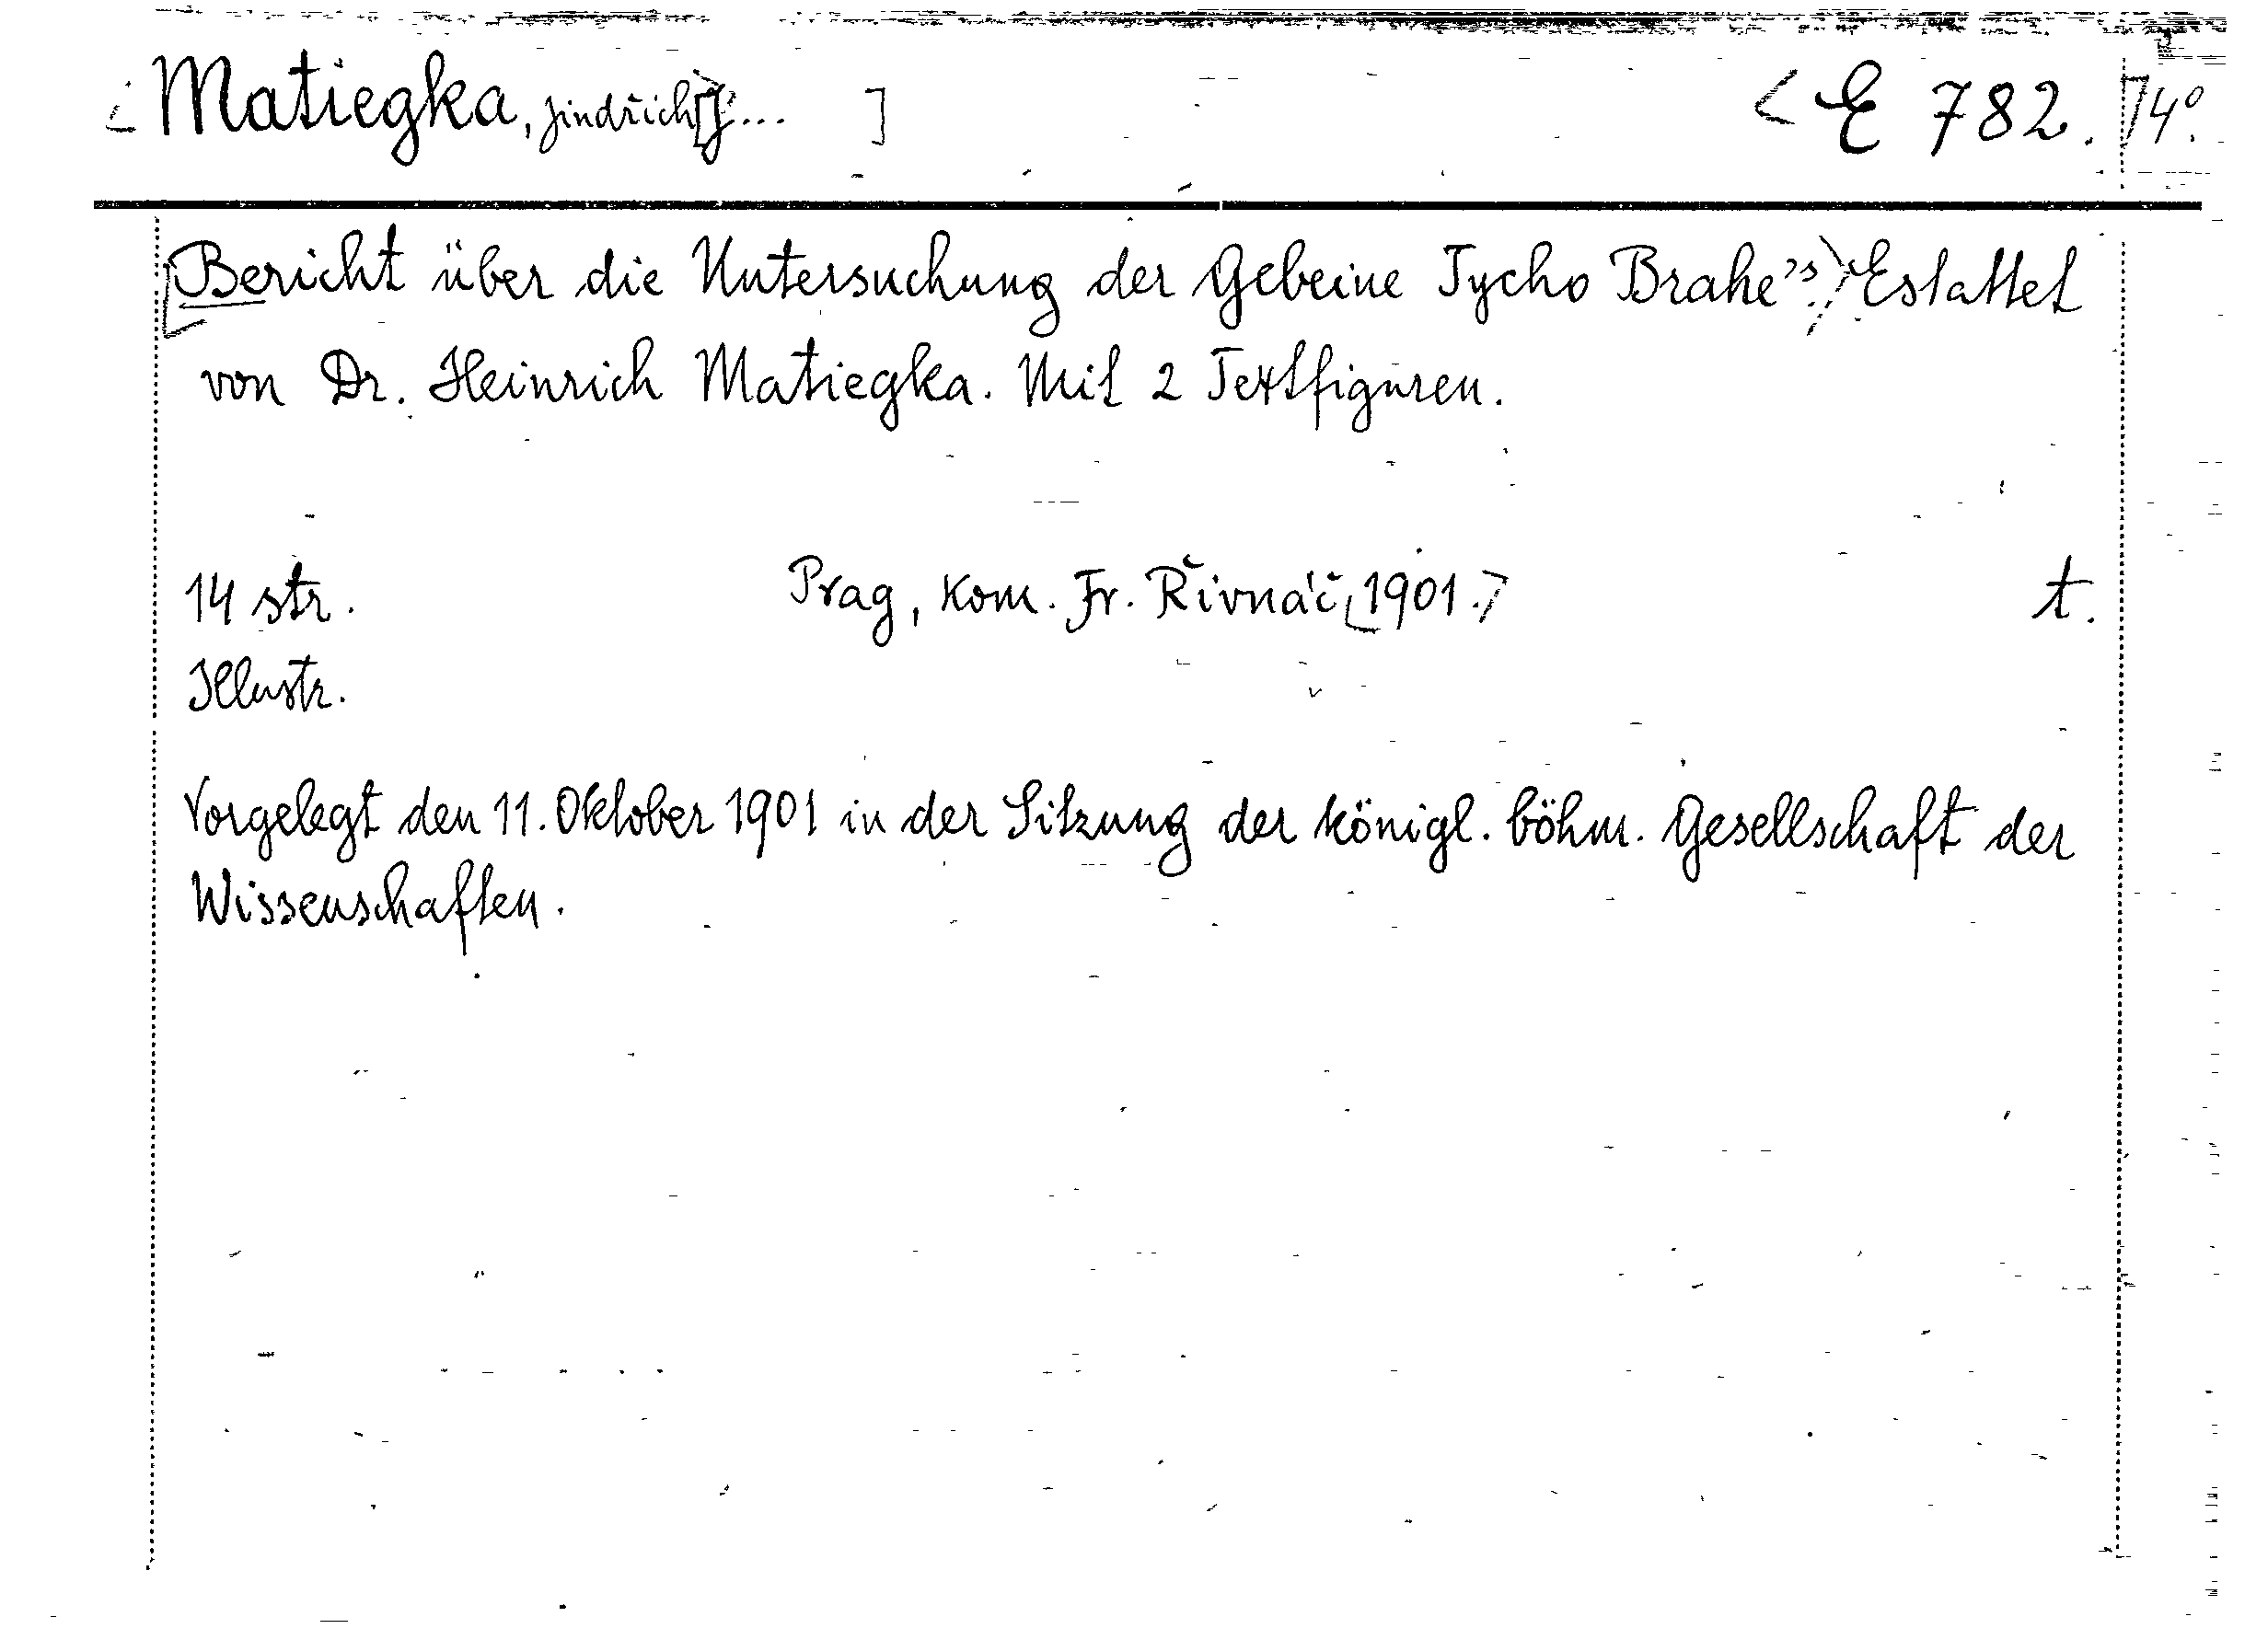 Matiegka, Jindřich [J... ] < E 782. 4°.
Bericht über die Untersuchung der Gebeine Tycho Brahe's. Estattet
von Dr. Heinrich Matiegka. Mit 2 Textfiguren.
14 str. Prag, Kom. Fr. Řivnáč [1901.] t.
Illustr.
Vorgelegt den 11. Oktober 1901 in der Sitzung der königl. böhm. Gesellschaft der
Wissenschaften.